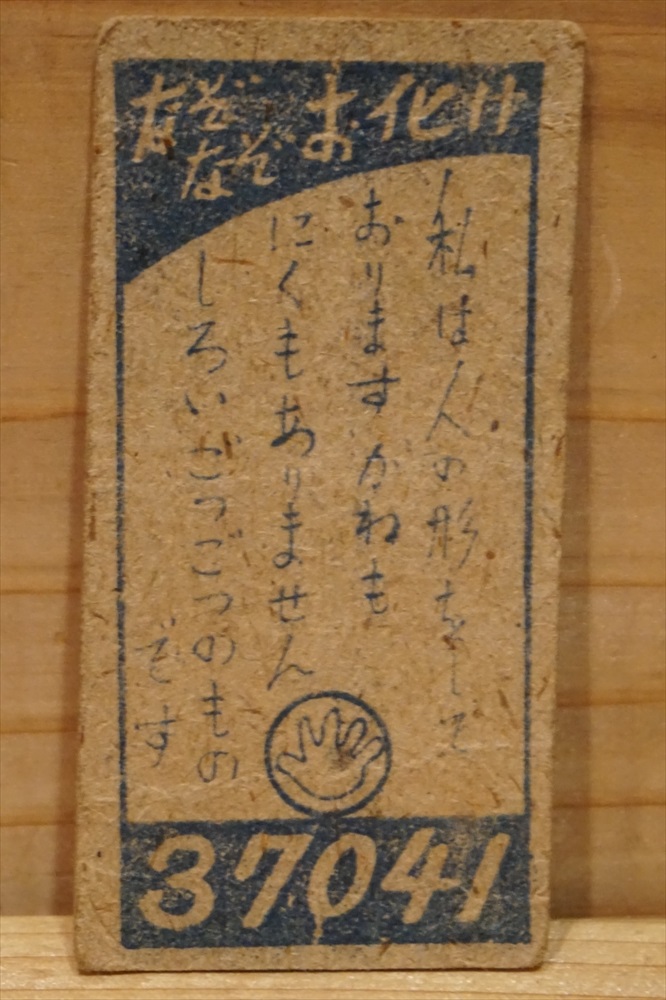 なぞなぞお化け
私は人の形をして
おりますがねも
にくもありません
しろいごつごつのもの
です
37041